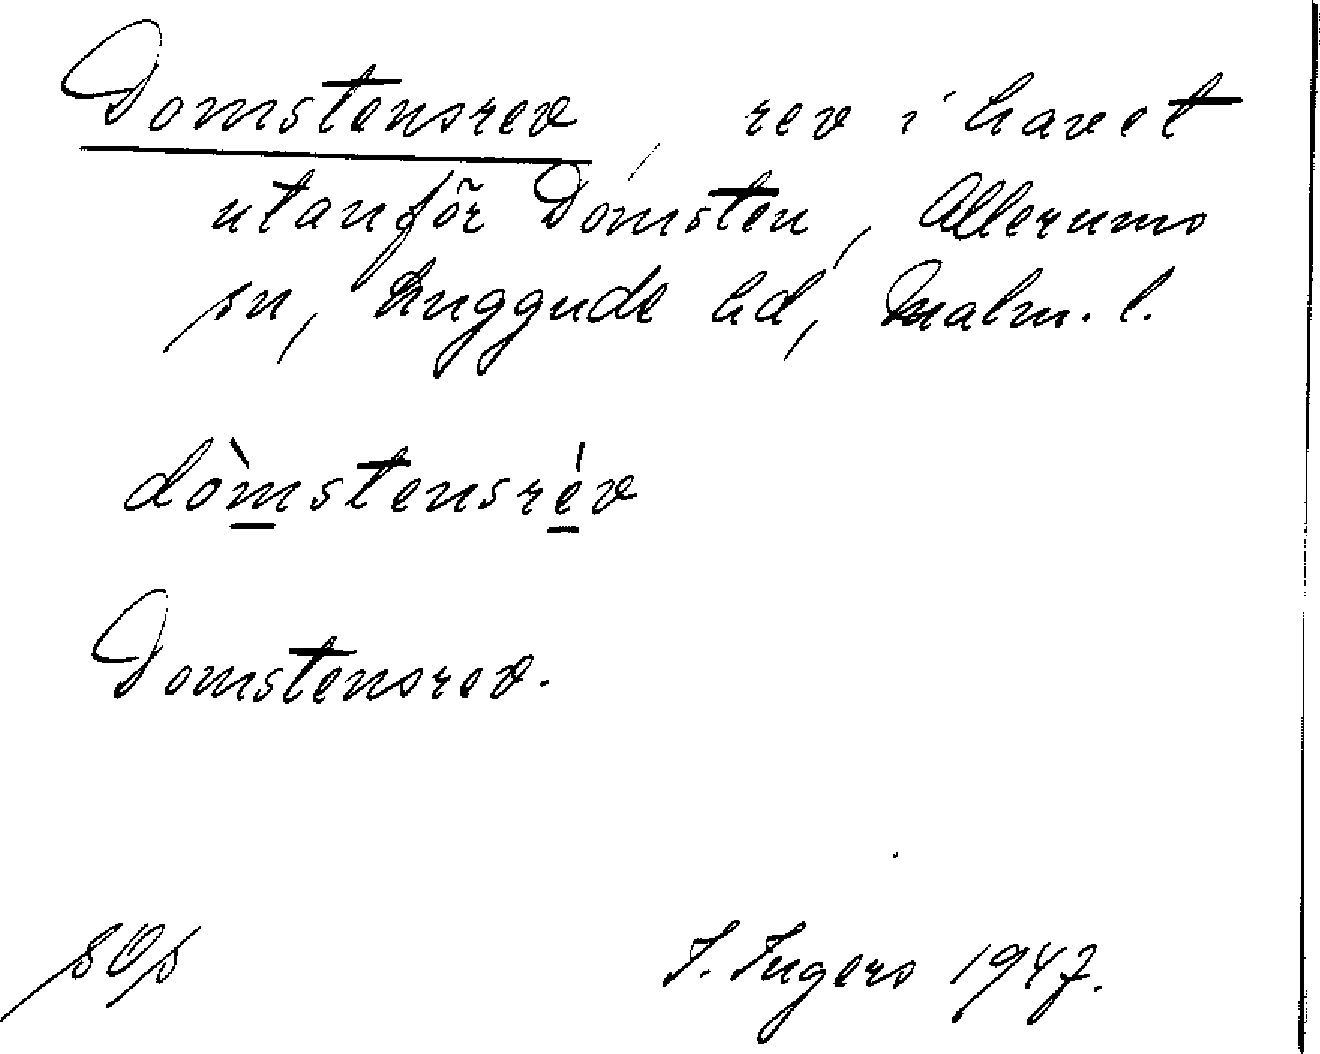 Domstensrev, rev i havet
utanför Domsten, Allerums
sn, Luggude hd, Malm. l.
dòmstensrév
Domstensrev.
I. Ingers 1947.